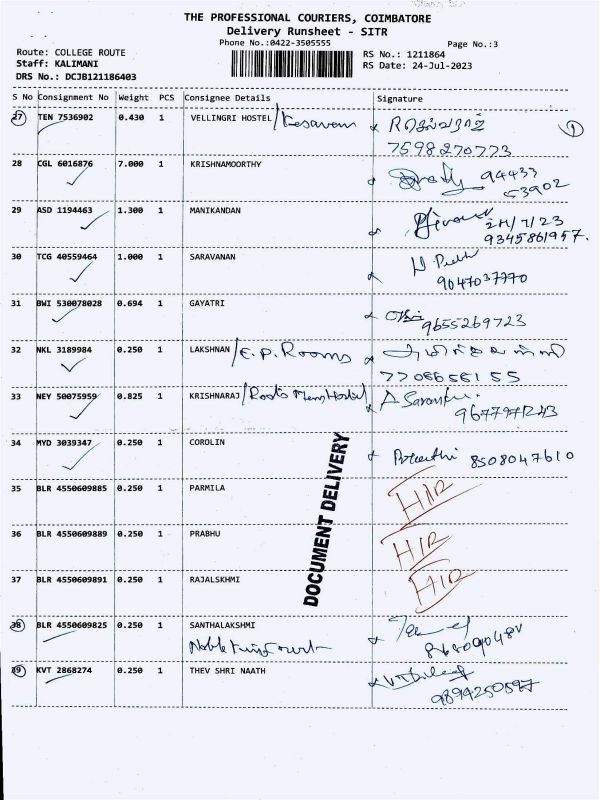 THE PROFESSIONAL COURIERS, COIMBATORE
Delivery Runsheet - SITR
Phone No.:0422-3505555
Page No.:3
Route: COLLEGE ROUTE
Staff: KALIMANI
DRS No.: DCJB121186403
RS No.: 1211864
RS Date: 24-Jul-2023
S No Consignment No Weight PCS Consignee Details Signature
27 TEN 7536902 0.430 1 VELLINGRI HOSTEL /Kesavan 1
7598270773
28 CGL 6016876 7.000 1 KRISHNAMOORTHY 94433
53902
29 ASD 1194463 1.300 1 MANIKANDAN 24/7/23
9345861957.
30 TCG 40559464 1.000 1 SARAVANAN
9047037770
31 BWI 530078028 0.694 1 GAYATRI 9655269723
32 NKL 3189984 0.250 1 LAKSHNAN /E.P. Rooms
7708656155
33 NEY 50075959 0.825 1 KRISHNARAJ / Mens Hostel A
9677971243
34 MYD 3039347 0.250 1 COROLIN Preethi 8508047610
35 BLR 4550609885 0.250 1 PARMILA HIR
36 BLR 4550609889 0.250 1 PRABHU HIR
37 BLR 4550609891 0.250 1 RAJALSKHMI HIR
DOCUMENT DELIVERY
38 BLR 4550609825 0.250 1 SANTHALAKSHMI
39 KVT 2868274 0.250 1 THEV SHRI NAATH
9894250597